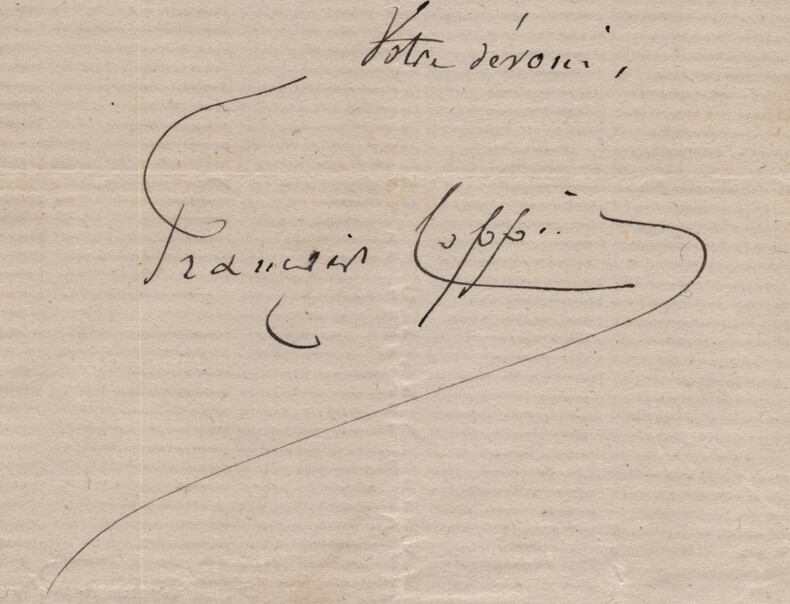 Votre dévoué,
François Coppée